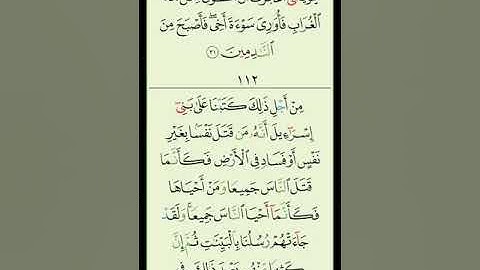 الْغُرَابِ فَأُوَارِيَ سَوْءَةَ أَخِي ۖ فَأَصْبَحَ مِنَ
النَّادِمِينَ ﴿٣١﴾
١١٢
مِنْ أَجْلِ ذَٰلِكَ كَتَبْنَا عَلَىٰ بَنِي
إِسْرَائِيلَ أَنَّهُ مَن قَتَلَ نَفْسًا بِغَيْرِ
نَفْسٍ أَوْ فَسَادٍ فِي الْأَرْضِ فَكَأَنَّمَا
قَتَلَ النَّاسَ جَمِيعًا وَمَنْ أَحْيَاهَا
فَكَأَنَّمَا أَحْيَا النَّاسَ جَمِيعًا ۚ وَلَقَدْ
جَاءَتْهُمْ رُسُلُنَا بِالْبَيِّنَاتِ ثُمَّ إِنَّ